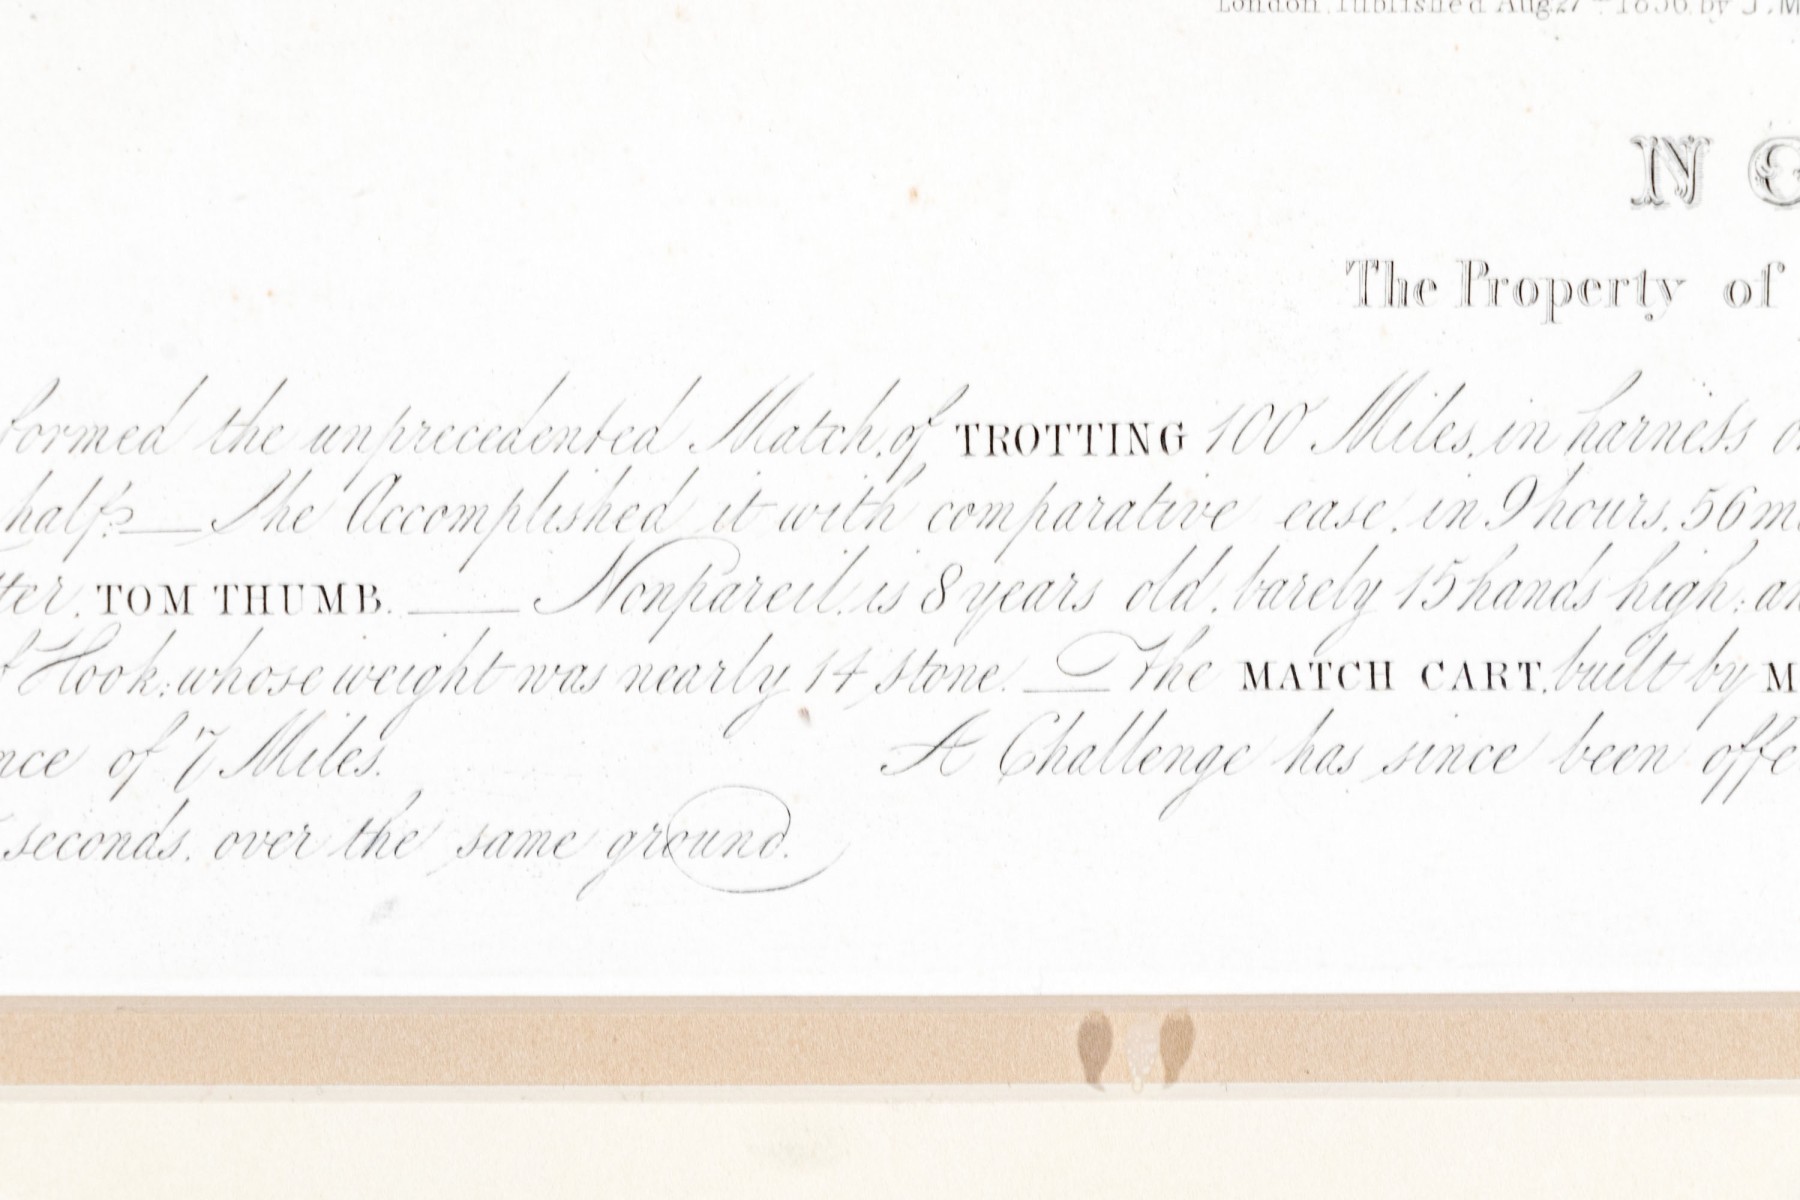 London, Published Aug 27th 1836, by J. M
N O
The Property of
formed the unprecedented Match, of TROTTING 100 Miles, in harness
half. — She Accomplished it with comparative ease, in 9 hours, 56
TOM THUMB. — Nonpareil, is 8 years old, barely 15 hands high; an
Hook; whose weight was nearly 14 stone. — The MATCH CART, built by M
nce of 7 Miles. A Challenge has since been offe
seconds, over the same ground.